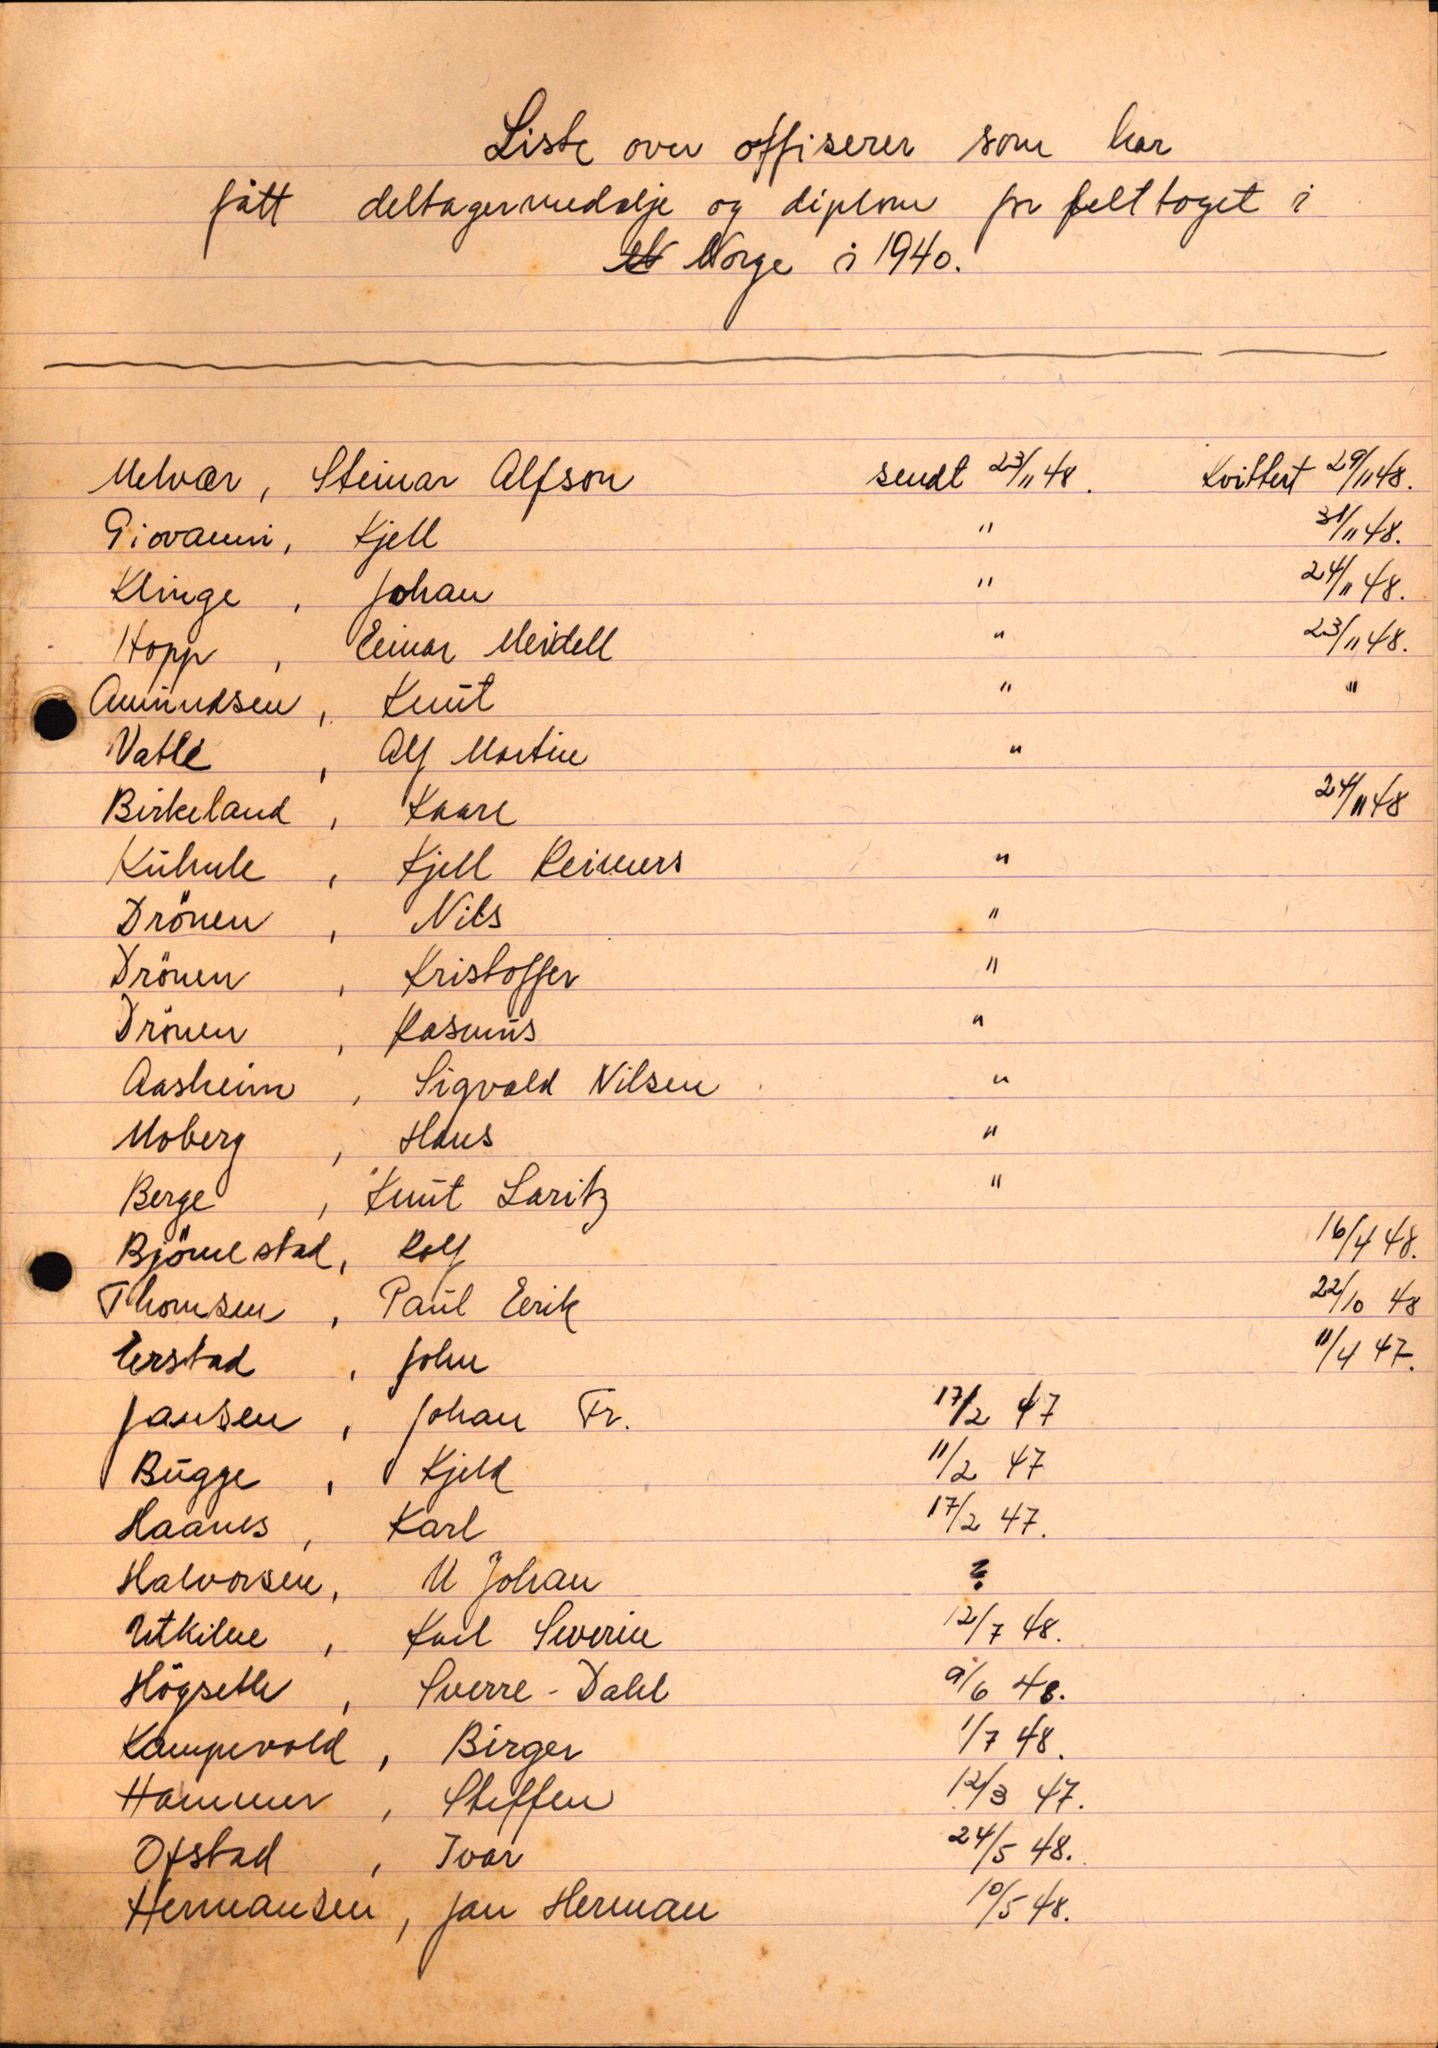 Liste over offiserer som har
fått deltagermedalje og diplom for felttoget i
N Norge i 1940.
Melvær, Steinar Alfson sendt 23/11 48. Kvittert 29/11 48.
Giovanni, Kjell " 31/11 48.
Klinge, Johan " 24/11 48.
Hopp, Einar Meidell " 23/11 48.
Amundsen, Knut " "
Vatle, Alf Martin "
Birkeland, Kaare 24/11 48
Kühnle, Kjell Reimers "
Drönen, Nils "
Drönen, Kristoffer "
Drönen, Rasmus "
Aasheim, Sigvald Nilsen "
Moberg, Hans "
Berge, Knut Laritz "
Björnestad, Rolf 16/4 48.
Thomsen, Paul Eerik 22/10 48
Erstad, John 11/4 47.
Jansen, Johan Fr. 17/2 47
Bugge, Kjeld 11/2 47
Haanes, Karl 17/2 47.
Halvorsen, M Johan ?
Utkilne, Karl Severin 12/7 48.
Högseth, Sverre-Dahl 9/6 48.
Kampevold, Birger 1/7 48.
Hammer, Steffen 12/3 47.
Ofstad, Ivar 24/5 48.
Hermansen, Jan Herman 10/5 48.